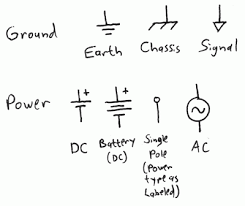 Ground
Earth Chassis Signal
Power
+ +
DC Battery (DC) Single Pole (Power type as Labeled) AC